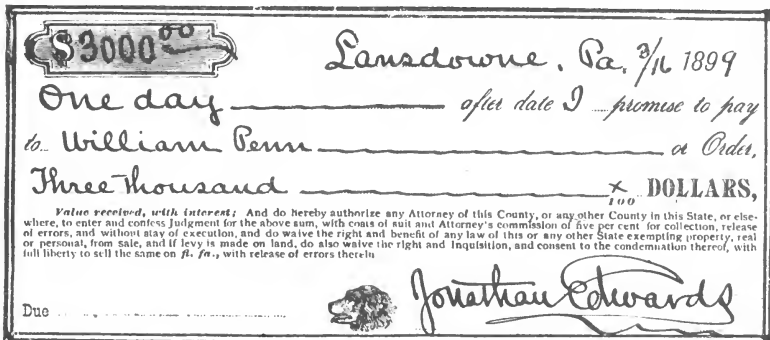 $3000 00
Lansdowne, Pa. 3/16 1899
One day after date I promise to pay
to William Penn or Order,
Three thousand x/100 DOLLARS,
Value received, with interest; And do hereby authorize any Attorney of this County, or any other County in this State, or else-
where, to enter and confess Judgment for the above sum, with costs of suit and Attorney's commission of five per cent for collection, release
of errors, and without stay of execution, and do waive the right and benefit of any law of this or any other State exempting property, real
or personal, from sale, and if levy is made on land, do also waive the right and Inquisition, and consent to the condemnation thereof, with
full liberty to sell the same on fi. fa., with release of errors therein
Jonathan Edwards
Due